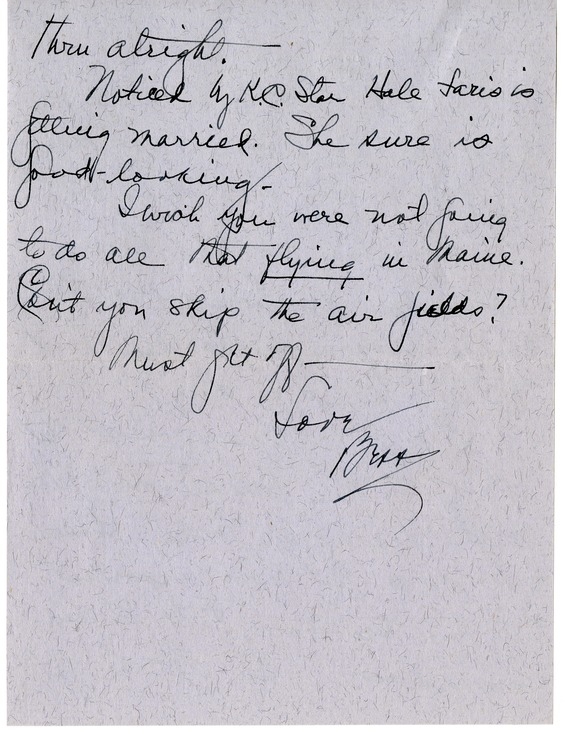 thru alright. —
Noticed by K.C. Star Hale Faris is
getting married. She sure is
good-looking. -
I wish you were not going
to do all that flying in Maine.
Can't you skip the air fields?
Must get off —
Love
Bess